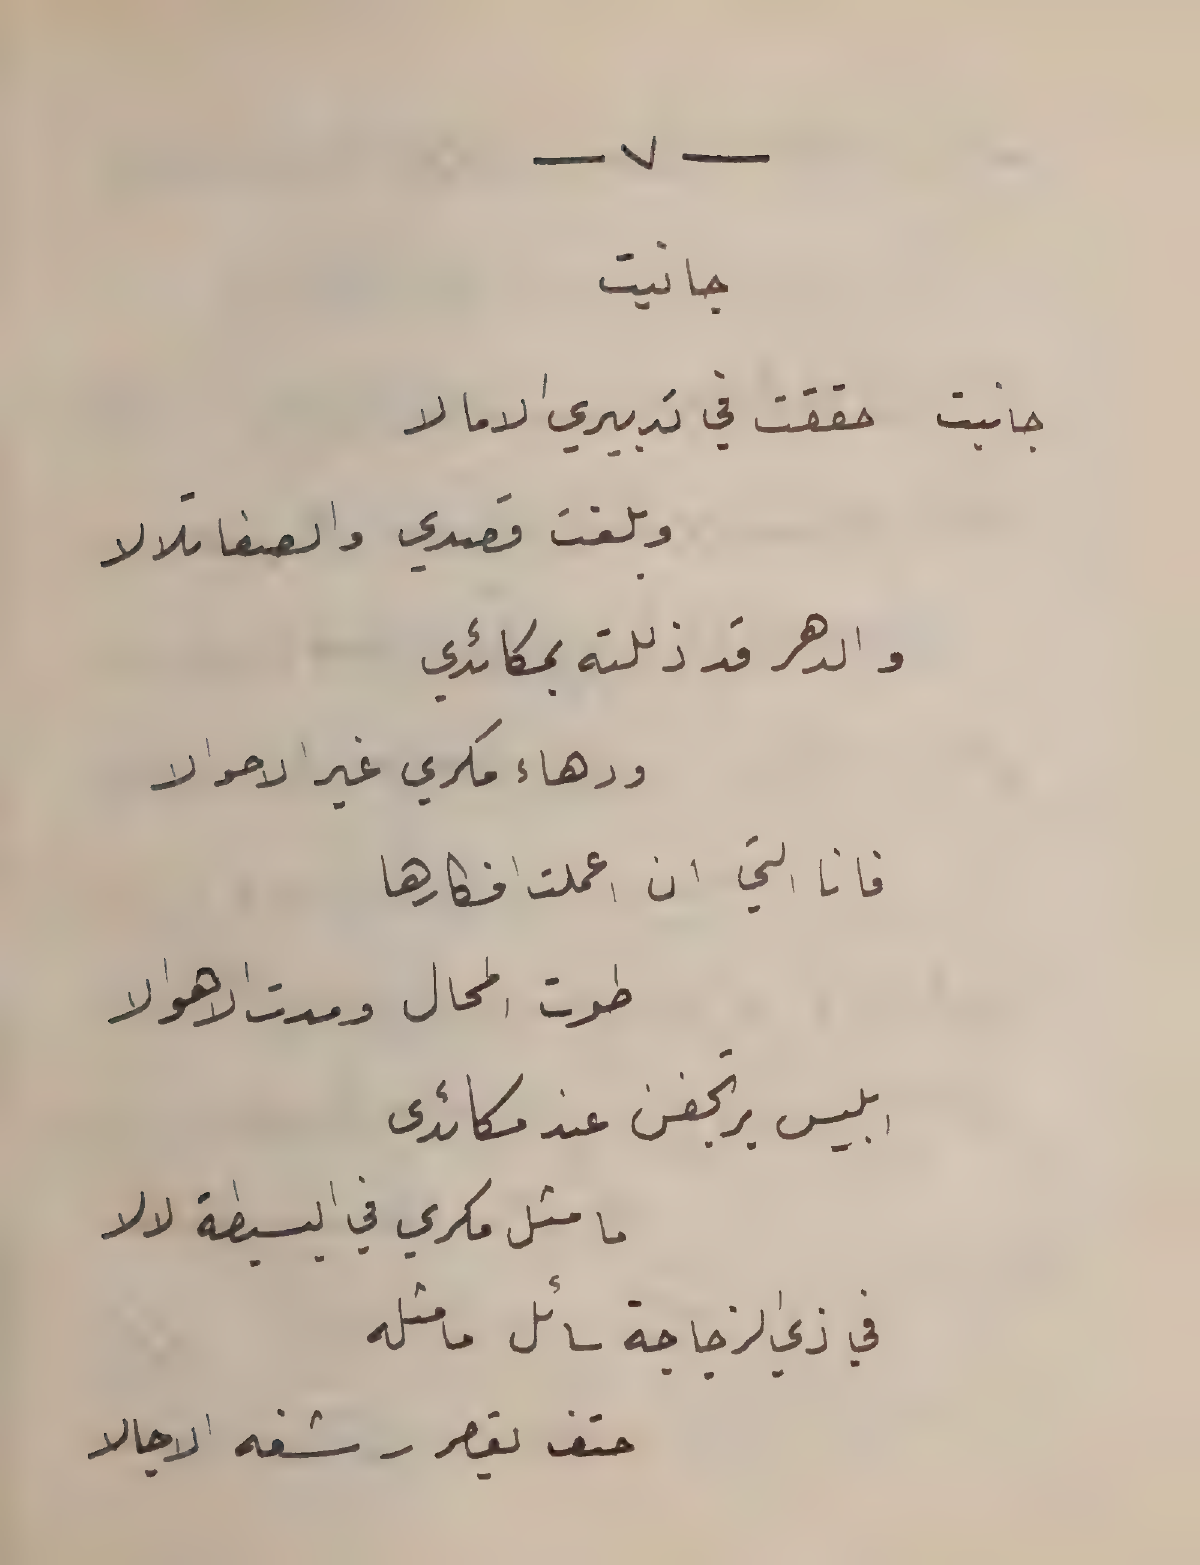 — ٧ —
جانيت
جانيت حققت في تدبيري الامالا
وبلغت قصدي والصفا تلالا
والدهر قد ذللته بمكائدي
ودهاء مكري غير الاحوالا
فانا التي ان اعملت افكارها
طوت المحال ومدت الاهوالا
ابليس يرتجفن عند مكائدى
ما مثل مكري في البسيطة لالا
في ذي الزجاجة سائل ما مثله
حتف يقصر رشفه الاجالا